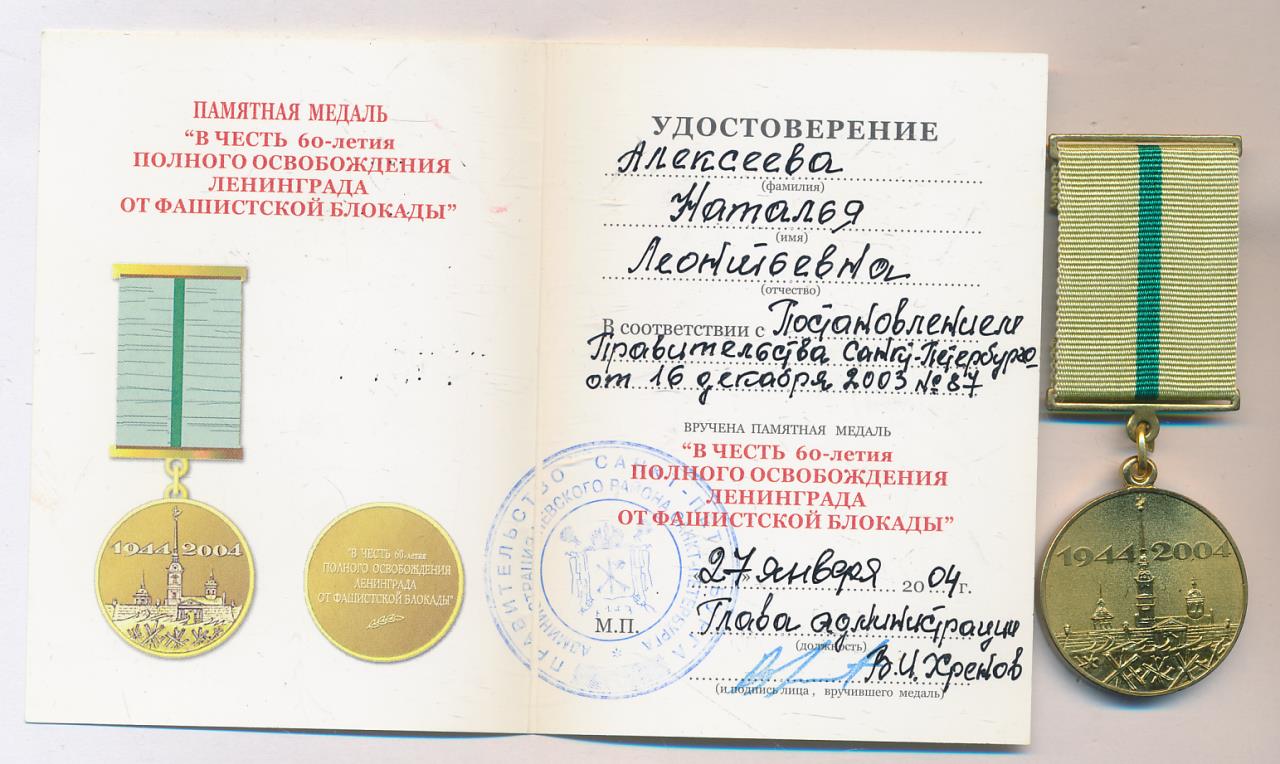 ПАМЯТНАЯ МЕДАЛЬ
“В ЧЕСТЬ 60-летия
ПОЛНОГО ОСВОБОЖДЕНИЯ
ЛЕНИНГРАДА
ОТ ФАШИСТСКОЙ БЛОКАДЫ”
1944 2004
"В ЧЕСТЬ 60-летия
ПОЛНОГО ОСВОБОЖДЕНИЯ
ЛЕНИНГРАДА
ОТ ФАШИСТСКОЙ БЛОКАДЫ"
УДОСТОВЕРЕНИЕ
Алексеева
(фамилия)
Наталья
(имя)
Леонтьевна
(отчество)
В соответствии с Постановлением
Правительства Санкт-Петербурга
от 16 декабря 2003 № 87
ВРУЧЕНА ПАМЯТНАЯ МЕДАЛЬ
“В ЧЕСТЬ 60-летия
ПОЛНОГО ОСВОБОЖДЕНИЯ
ЛЕНИНГРАДА
ОТ ФАШИСТСКОЙ БЛОКАДЫ”
«27» января 2004 г.
М.П.
Глава администрации
(должность)
В.И. Хренов
(и.подпись лица, вручившего медаль)
ПРАВИТЕЛЬСТВО САНКТ-ПЕТЕРБУРГА
1944 2004